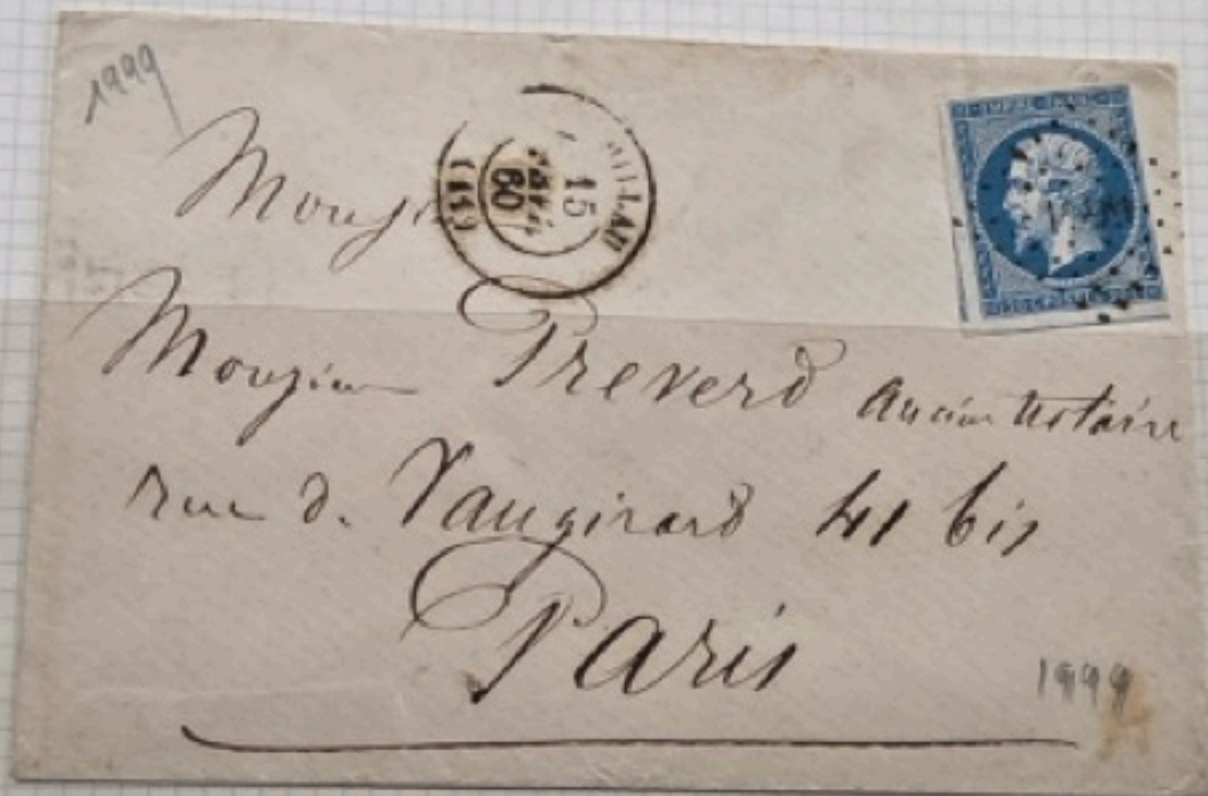 1999
Monsi
15
60
Monsieur Preverd ancien Notaire
rue de Vaugirard 41 bis
Paris
1999